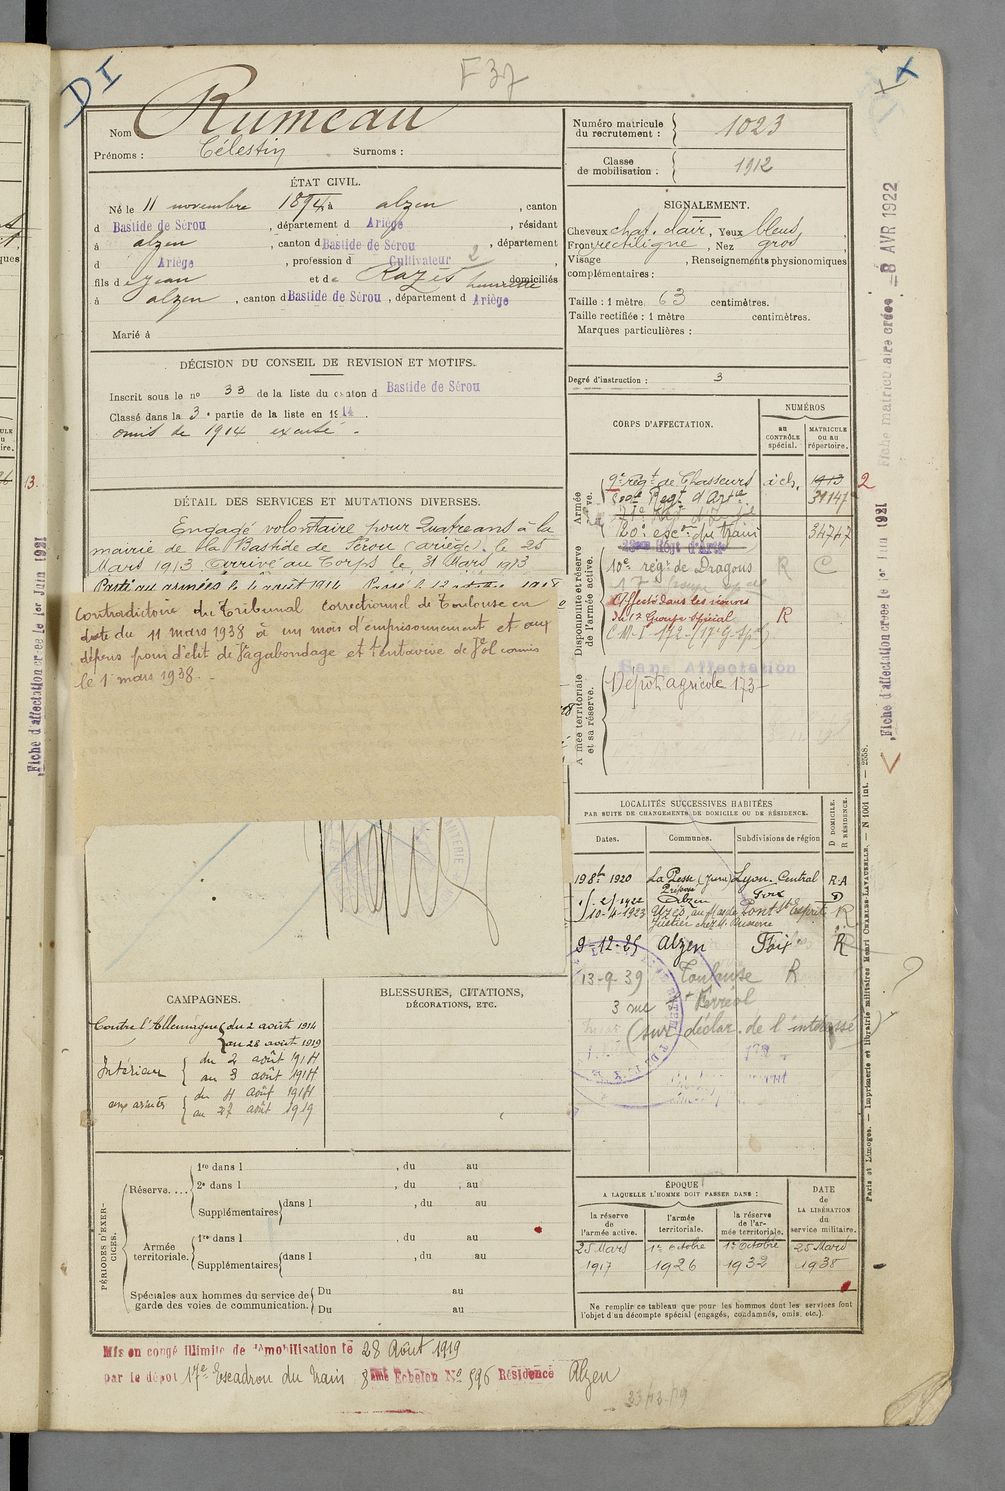 DI
F 37
Nom Rumeau
Prénoms : Célestin Surnoms :
Numéro matricule du recrutement : 1023
Classe de mobilisation : 1912
ÉTAT CIVIL.
Né le 11 novembre 1894, à alzen , canton
d Bastide de Sérou , département d Ariège , résidant
à alzen , canton d Bastide de Sérou , département
d Ariège , profession d Cultivateur 2
fils de jean et de Razès domiciliés
à alzen , canton d Bastide de Sérou , département d Ariège
Marié à
SIGNALEMENT.
Cheveux chat. clair, Yeux bleus,
Front rectiligne , Nez gros
Visage , Renseignements physionomiques
complémentaires :
Taille : 1 mètre 63 centimètres.
Taille rectifiée : 1 mètre centimètres.
Marques particulières :
Degré d'instruction : 3
DÉCISION DU CONSEIL DE REVISION ET MOTIFS.
Inscrit sous le no 33 de la liste du canton d Bastide de Sérou
Classé dans la 3e partie de la liste en 1914.
omis de 1914 excusé.
DÉTAIL DES SERVICES ET MUTATIONS DIVERSES.
Engagé volontaire pour Quatre ans à la
mairie de la Bastide de Sérou (ariège). le 25
Mars 1913. Arrivé au Corps le 31 Mars 1913
Parti aux armées le 4 août 1914
Contradictoire du Tribunal correctionnel de Toulouse en
date du 11 mars 1938 à un mois d'emprisonnement et aux
dépens pour délit de Vagabondage et tentative de Vol commis
le 1 mars 1938.
CORPS D'AFFECTATION.
NUMÉROS
au CONTRÔLE spécial.
MATRICULE ou au répertoire.
Armée active.
9e régt de Chasseurs à ch. 1913 2
Regt d'Artie 31147
20e escon du train 34747
Disponibilité et réserve de l'armée active.
10e régt de Dragons R C
Affecté dans les réserves
du 17 Groupe spécial R
Armée territoriale et sa réserve.
Sans Affectation
Dépôt agricole 173
LOCALITÉS SUCCESSIVES HABITÉES
PAR SUITE DE CHANGEMENTS DE DOMICILE OU DE RÉSIDENCE.
Dates. Communes. Subdivisions de région D DOMICILE. R RÉSIDENCE.
19 8bre 1920 La Pesse (Jura) Lyon-Central R-A
Alzen Foix D
10-4-1923 Uzès, au Mas de Pont St Esprit R
9-12-25 Alzen Foix R
13-9-39 Toulouse R
3 rue
(sur déclar. de l'intéressé)
CAMPAGNES.
Contre l'Allemagne du 2 août 1914
au 28 août 1919
Intérieur du 2 août 1914
au 3 août 1914
aux armées du 4 août 1914
au 27 août 1919
BLESSURES, CITATIONS,
DÉCORATIONS, ETC.
PÉRIODES D'EXERCICES.
Réserve....
1re dans l , du au
2e dans l , du au
Supplémentaires dans l , du au
Armée territoriale.
1re dans l , du au
Supplémentaires dans l , du au
Spéciales aux hommes du service de garde des voies de communication.
Du au
Du au
ÉPOQUE
A LAQUELLE L'HOMME DOIT PASSER DANS :
la réserve de l'armée active.
l'armée territoriale.
la réserve de l'armée territoriale.
DATE DE LA LIBÉRATION du service militaire.
25 Mars 1917
1er octobre 1926
1er octobre 1932
25 Mars 1938
Ne remplir ce tableau que pour les hommes dont les services font
l'objet d'un décompte spécial (engagés, condamnés, omis, etc.).
Mis en congé illimité de démobilisation le 28 Août 1919
par le dépôt 17e Escadron du Train 8ème Echelon No 596 Résidence Alzen
23/12/19
Fiche matriculaire créée - 8 AVR 1922
Fiche d'affectation créée le 1er Juin 1921
Fiche d'affectation créée le 1er Juin 1921
Paris et Limoges. — Imprimerie et librairie militaires Henri CHARLES-LAVAUZELLE. — N 1001 int. — 2558.